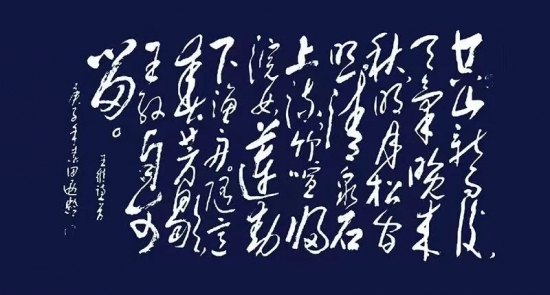 空山新雨後
天氣晚来
秋明月松间
照清泉石
上流竹喧归
浣女蓮動
下渔舟随意
春芳歇
王孙自可
留。
王维诗
庚子年